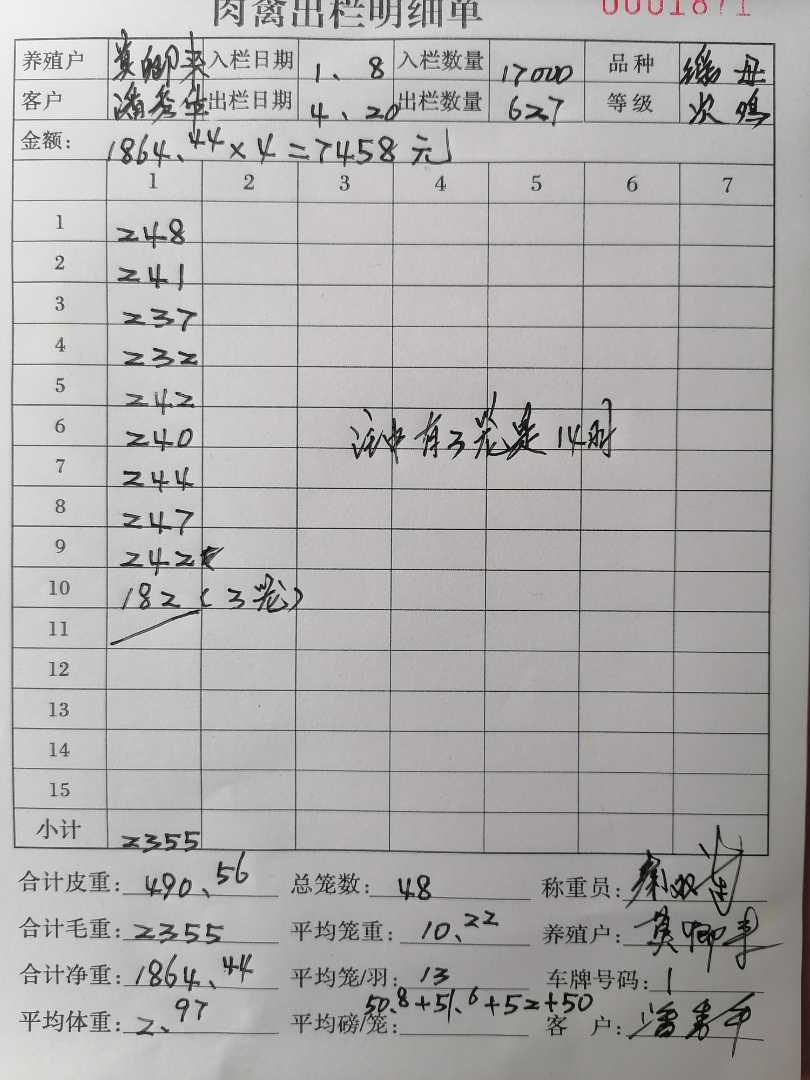 肉禽出栏明细单 0001871
养殖户 入栏日期 1、8 入栏数量 17000 品种
客户 出栏日期 4、20 出栏数量 627 等级 次鸡
金额: 1864.44×4=7458元
1 2 3 4 5 6 7
1 248
2 241
3 237
4 232
5 242
6 240 注中有3笼是14时
7 244
8 247
9 242
10 182(3笼)
11
12
13
14
15
小计 2355
合计皮重: 490.56 总笼数: 48 称重员:
合计毛重: 2355 平均笼重: 10.22 养殖户:
合计净重: 1864.44 平均笼/羽: 13 车牌号码: 1
50.8+51.6+52+50
平均体重: 2.97 平均磅/笼: 客 户: